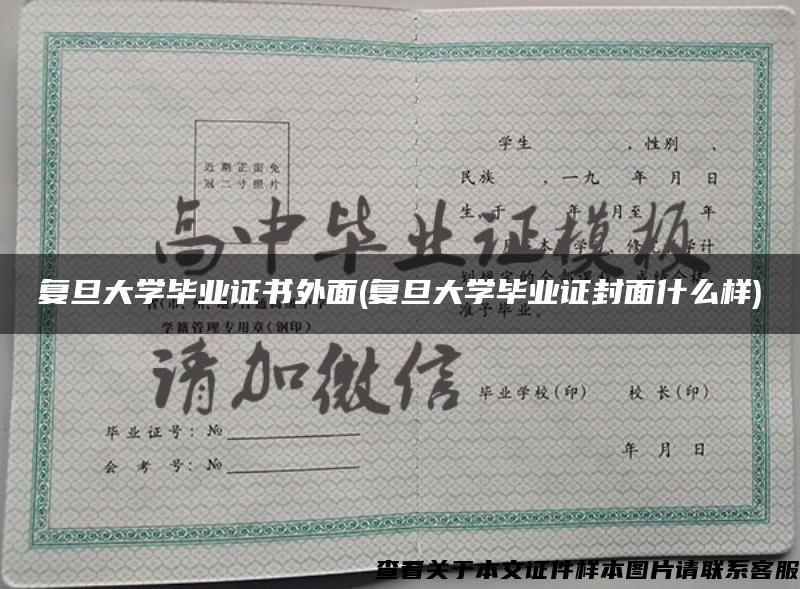 近期正面免
冠二寸照片
学籍管理专用章(钢印)
毕业证号：№
会考号：№
学生，性别、
民族 ，一九 年 月 日
生，于 年 月至 年
准予毕业。
毕业学校(印) 校长(印)
年 月 日
高中毕业证模板
复旦大学毕业证书外面(复旦大学毕业证封面什么样)
请加微信
查看关于本文证件样本图片请联系客服